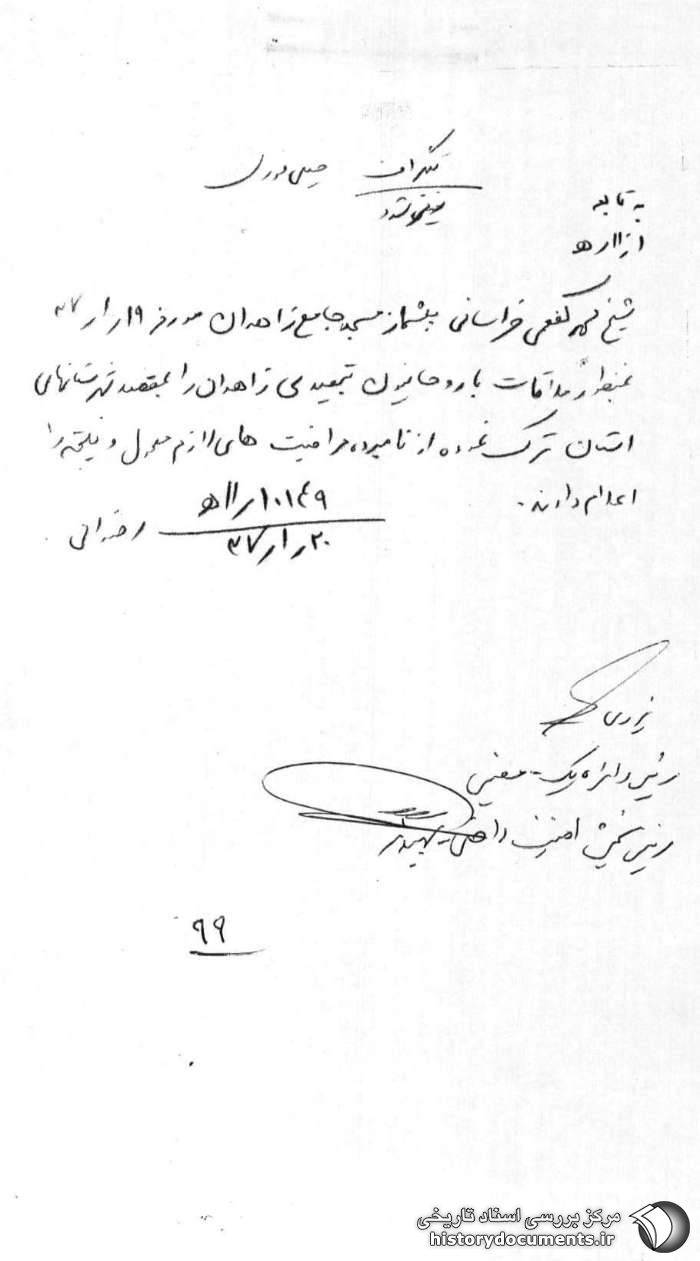 تلگراف خیلی فوری
به تابعه
از ۱۱ ره ه
شیخ محمد کفعمی خراسانی پیشنماز مسجد جامع زاهدان مورخ ۱۹ر۱ر۳۷
بمنظور ملاقات با روحانیون تبعیدی زاهدان را بمقصد شهرستانهای
استان ترک نموده از نامبرده مراقبت های لازم معمول و نتیجه را
اعلام دارند.
۱۰۱۴۹ر۱۱ه
۲۰ر۱ر۳۷ رضوانی
رئیس دایره یک - معینی
رئیس بخش امنیت داخلی -
۹۹
مرکز بررسی اسناد تاریخی
historydocuments.ir